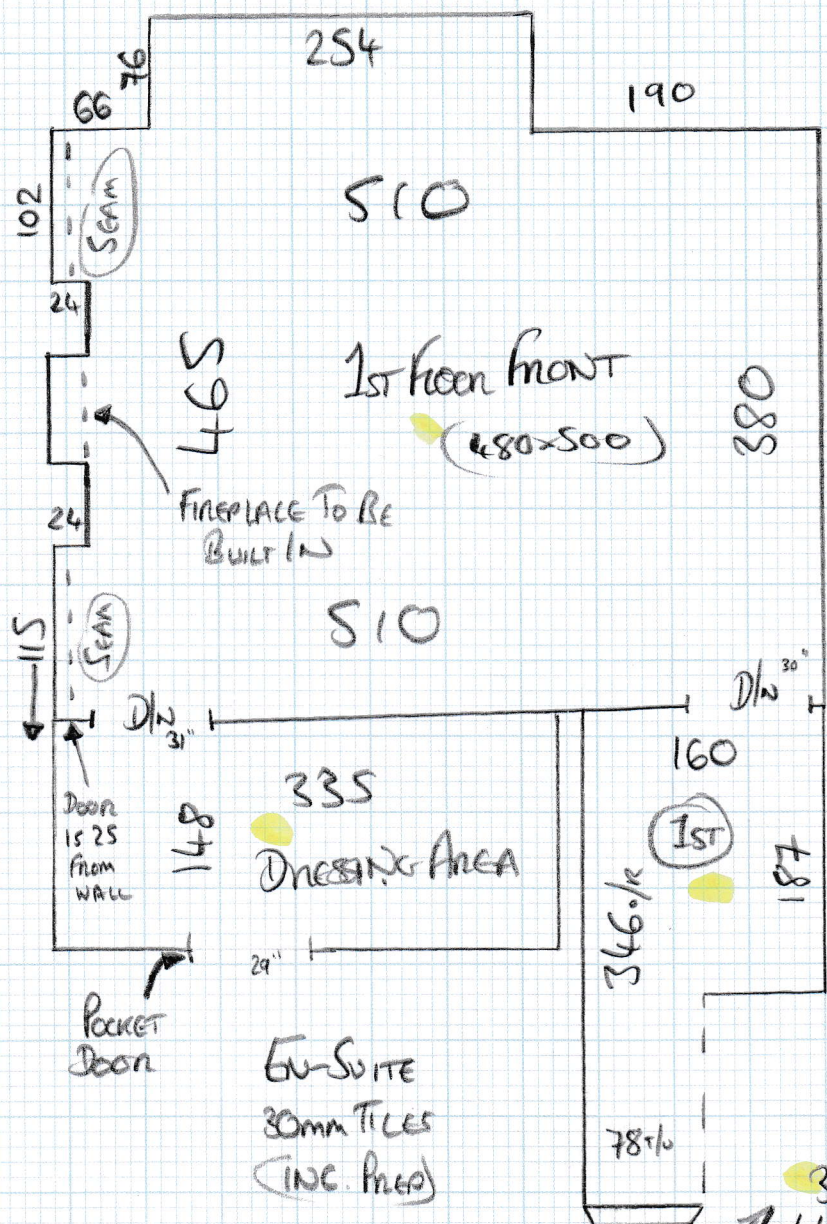 254
76
66
190
102
SEAM
510
24
465
1ST FLOOR FRONT
(480x500)
380
24
FIREPLACE TO BE
BUILT IN
115
SEAM
510
D/N 31"
D/N 30"
160
DOOR
IS 25
FROM
WALL
148
335
DRESSING AREA
1ST
346 o/R
187
29"
POCKET
DOOR
EN-SUITE
30mm TILES
(INC. PREP)
78 T/O